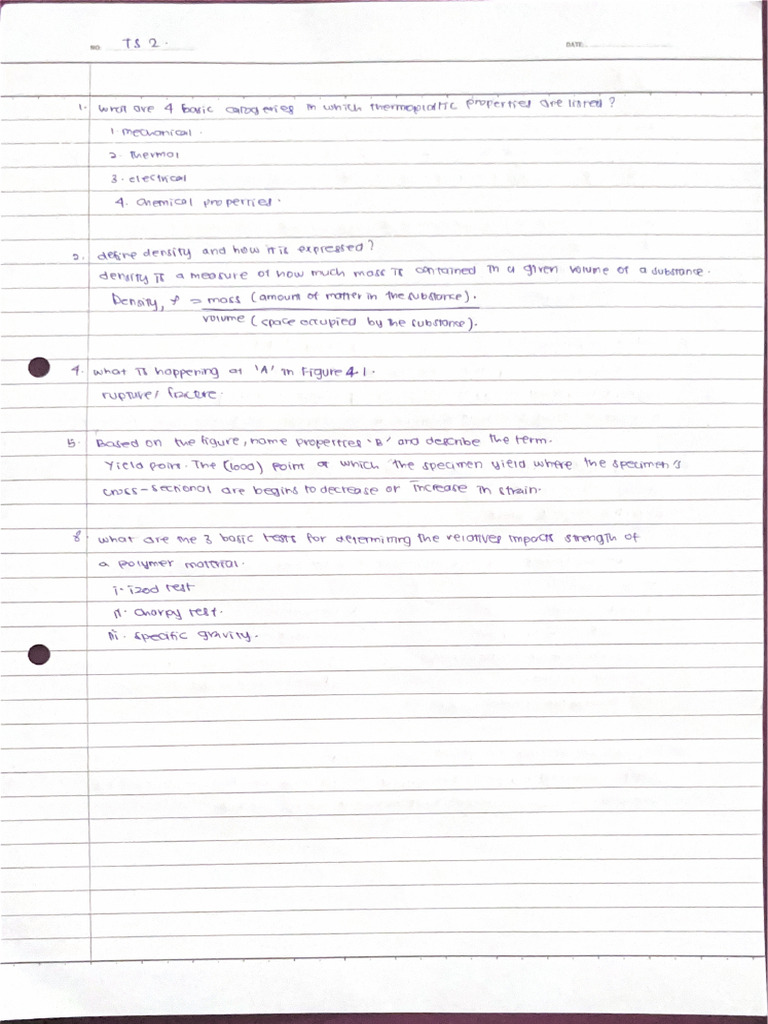 NO. TS 2. DATE
1. what are 4 basic categories in which thermoplastic properties are listed?
1. mechanical.
2. thermal
3. electrical
4. chemical properties.
2. define density and how it is expressed?
density is a measure of how much mass is contained in a given volume of a substance.
Density, ρ = mass (amount of matter in the substance).
volume (space occupied by the substance).
4. what is happening at 'A' in Figure 4.1.
rupture/
5. Based on the figure, name properties 'B' and describe the term.
Yield point. The (load) point at which the specimen yield where the specimen's
cross-sectional are begins to decrease or increase in strain.
8. what are the 3 basic tests for determining the relatives impacts strength of
a polymer material.
i. izod test
ii. charpy test.
iii. specific gravity.